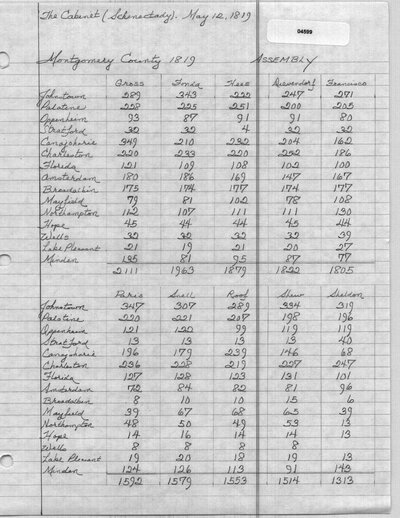 The Cabinet (Schenectady). May 12, 1819
04599
Montgomery County 1819 ASSEMBLY
Gross Fonda Hees Dievendorf Francisco
Johnstown 289 343 222 247 271
Palatine 228 225 251 200 205
Oppenheim 93 87 91 91 80
Stratford 32 32 4 32 32
Canajoharie 349 210 232 204 162
Charleston 220 233 220 252 186
Florida 121 109 108 102 100
Amsterdam 180 186 169 147 167
Broadalbin 175 174 177 174 177
Mayfield 79 81 102 78 108
Northampton 112 107 111 111 130
Hope 45 44 44 45 44
Wells 32 32 32 32 39
Lake Pleasant 21 19 21 20 27
Minden 135 81 95 87 77
2111 1963 1879 1822 1805
Paris Snell Roof Shew Sheldon
Johnstown 347 307 289 334 319
Palatine 220 221 207 198 196
Oppenheim 121 122 99 119 119
Stratford 13 13 13 13 40
Canajoharie 196 179 239 146 68
Charleston 236 228 219 227 247
Florida 127 128 123 131 101
Amsterdam 72 84 82 81 96
Broadalbin 8 10 10 15 6
Mayfield 39 67 68 65 39
Northampton 48 50 49 53 13
Hope 14 16 14 14 13
Wells 8 8 8 8
Lake Pleasant 19 20 18 19 13
Minden 124 126 113 91 143
1592 1579 1553 1514 1313